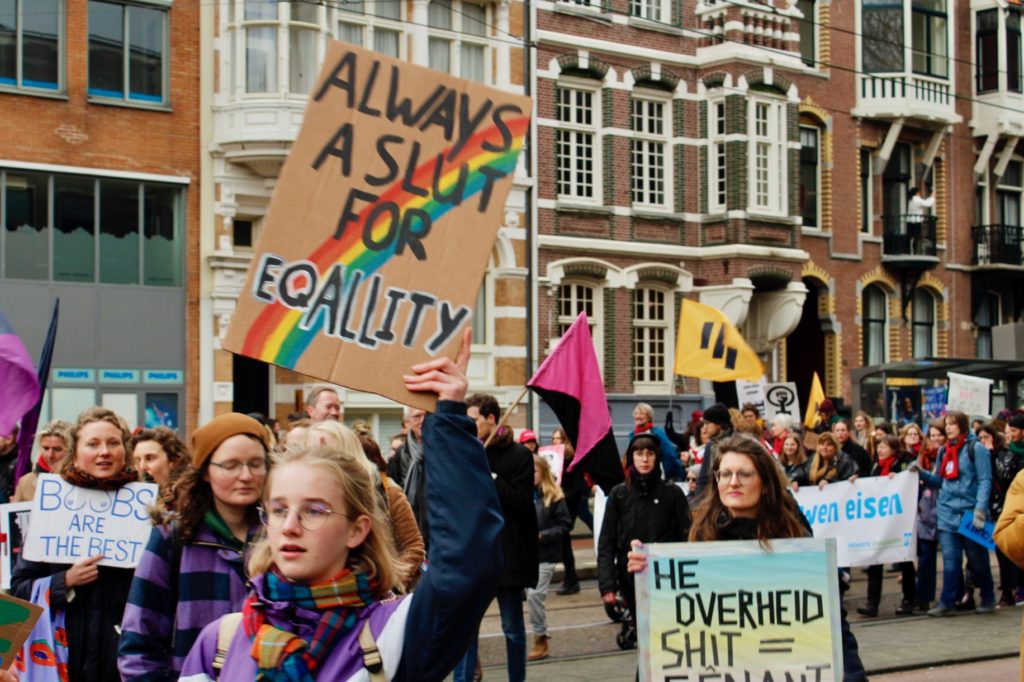 ALWAYS
A SLUT
FOR
EQALLITY
BOOBS
ARE
THE BEST
PHILIPS PHILIPS PHILIPS
wen eisen
HE
OVERHEID
SHIT =
GÊNANT